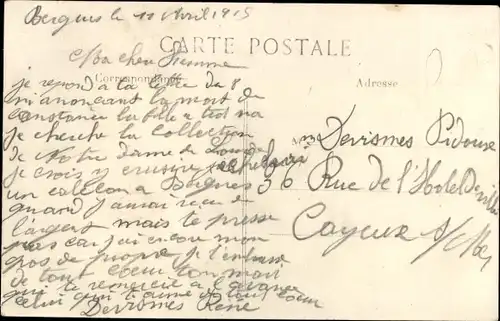 Bergues le 11 Avril 1915
CARTE POSTALE
Ma cher Femme
Correspondance
Adresse
je repond a ta lettre du 8
m'anoncant la mort de
constance la fille a
je cherche la collection
de Notre Dame de
je crois y
un caleçon a Bergues
quand j'aurai recu de
l'argent mais te presse
pas car j'ai encore mon
gros de propre je t'embrasse
de tout coeur ton mari
qui te remercie a l'avance
celui qui t'aime de tout coeur
Devismes René
Devismes
36 Rue de l'Hotel de ville
Cayeux s/Mer